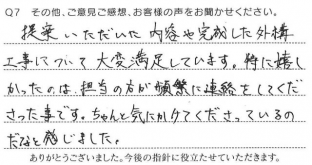 Q7 その他、ご意見ご感想、お客様の声をお聞かせください。
提案いただいた内容や完成した外構
工事について大変満足しています。特に嬉し
かったのは、担当の方が頻繁に連絡をしてくだ
さった事です。ちゃんと気にかけてくださっているの
だなと感じました。
ありがとうございました。今後の指針に役立たせていただきます。